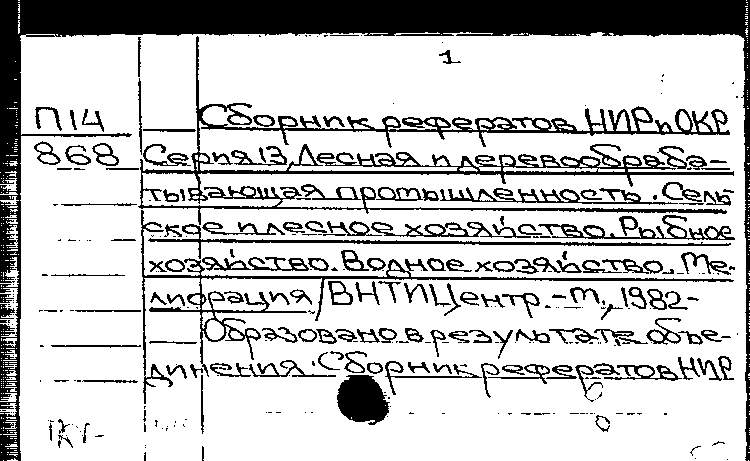 1
П14
868
Сборник рефератов НИР и ОКР
Серия 13, Лесная и деревообраба-
тывающая промышленность. Сель-
ское и лесное хозяйство. Рыбное
хозяйство. Водное хозяйство. Ме-
лиорация / ВНТИЦентр. - М., 1982-
Образовано в результате объе-
динения: Сборник рефератов НИР